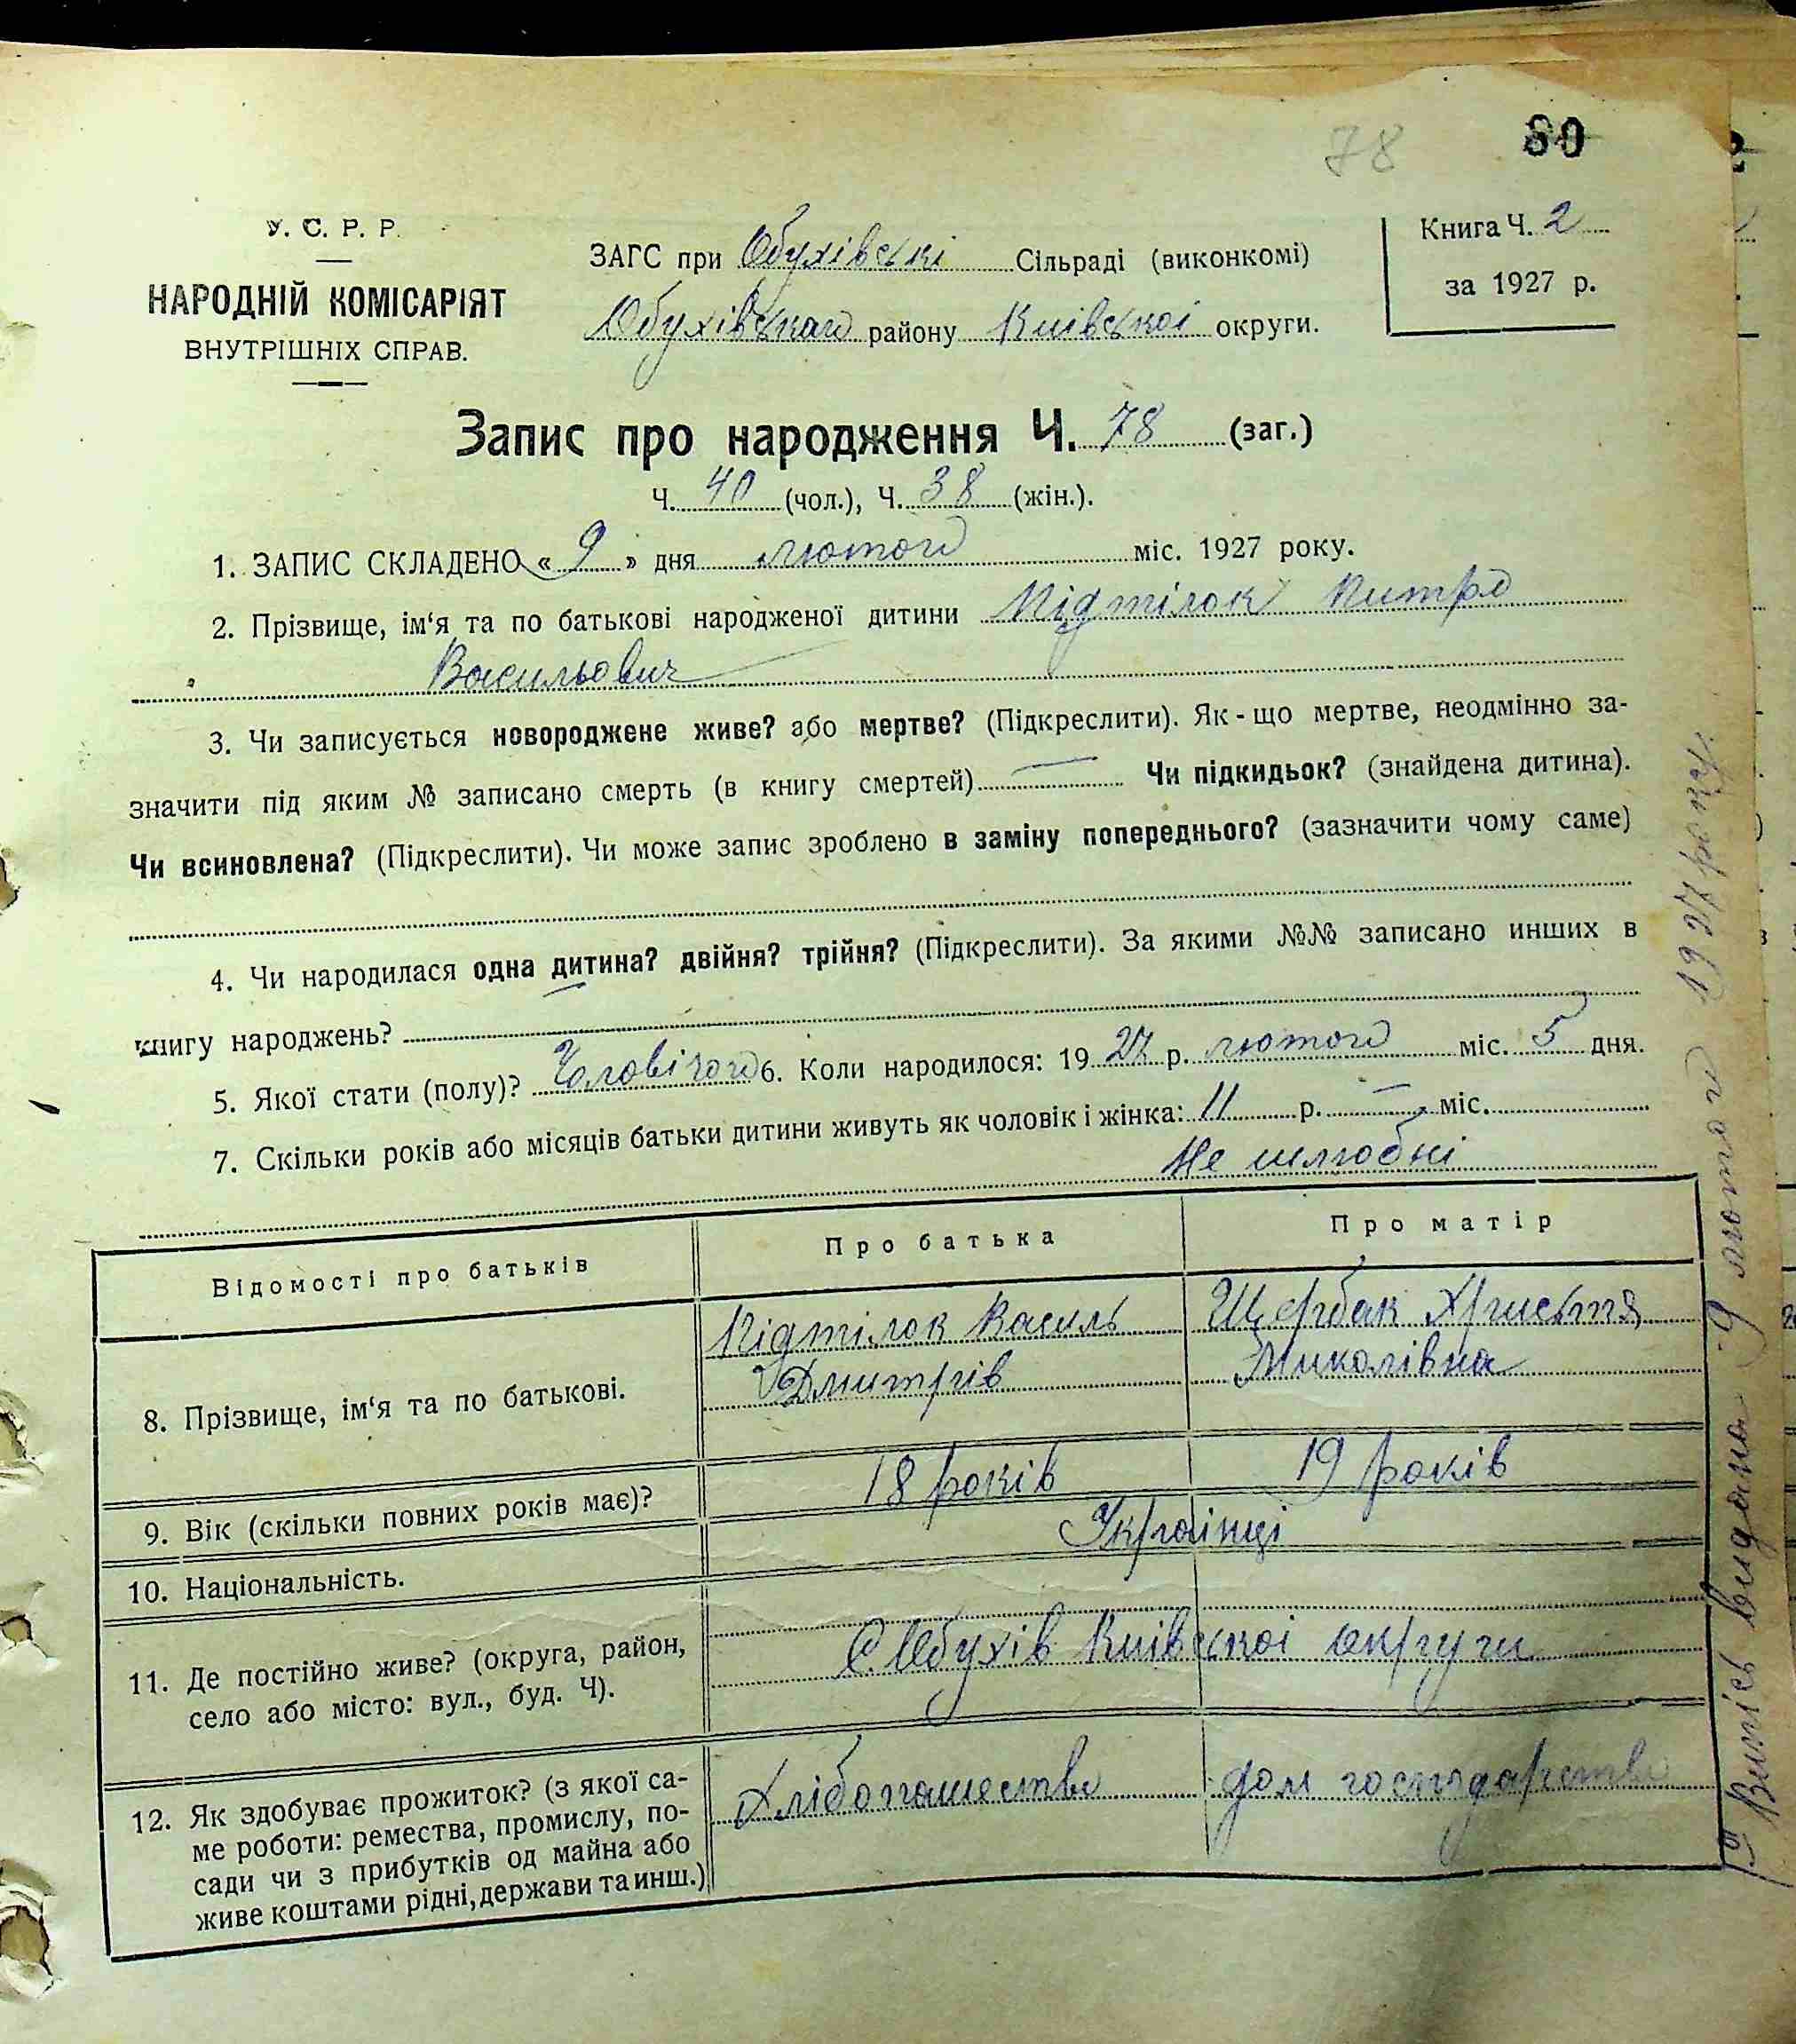 78 80
У. С. Р. Р.
НАРОДНІЙ КОМІСАРІЯТ
ВНУТРІШНІХ СПРАВ.
ЗАГС при Обухівські Сільраді (виконкомі)
Обухівского району Київскоі округи.
Книга Ч. 2
за 1927 р.
Запис про народження Ч. 78 (заг.)
Ч. 40 (чол.), Ч. 38 (жін.).
1. ЗАПИС СКЛАДЕНО « 9 » дня лютого міс. 1927 року.
2. Прізвище, ім‘я та по батькові народженої дитини Підтілок Питро
Васильович
3. Чи записується новороджене живе? або мертве? (Підкреслити). Як-що мертве, неодмінно за-
значити під яким № записано смерть (в книгу смертей) — Чи підкидьок? (знайдена дитина).
Чи всиновлена? (Підкреслити). Чи може запис зроблено в заміну попереднього? (зазначити чому саме)
4. Чи народилася одна дитина? двійня? трійня? (Підкреслити). За якими №№ записано инших в
книгу народжень?
5. Якої стати (полу)? Чоловічого 6. Коли народилося: 19 27 р. лютого міс. 5 дня.
7. Скільки років або місяців батьки дитини живуть як чоловік і жінка: 11 р. — міс.
Не шлюбні
Відомості про батьків Про батька Про матір
8. Прізвище, ім‘я та по батькові.
Підтілок Василь
Дмитрів
Щербак Христя
Миколівна
9. Вік (скільки повних років має)? 18 років 19 років
10. Національність. Українці
11. Де постійно живе? (округа, район,
село або місто: вул., буд. Ч).
С. Обухів Київскоі округи
12. Як здобуває прожиток? (з якої са-
ме роботи: ремества, промислу, по-
сади чи з прибутків од майна або
живе коштами рідні, держави та инш.)
Хлібопашество
дом господарство
Випісь видана 9 лютого 1927 року.